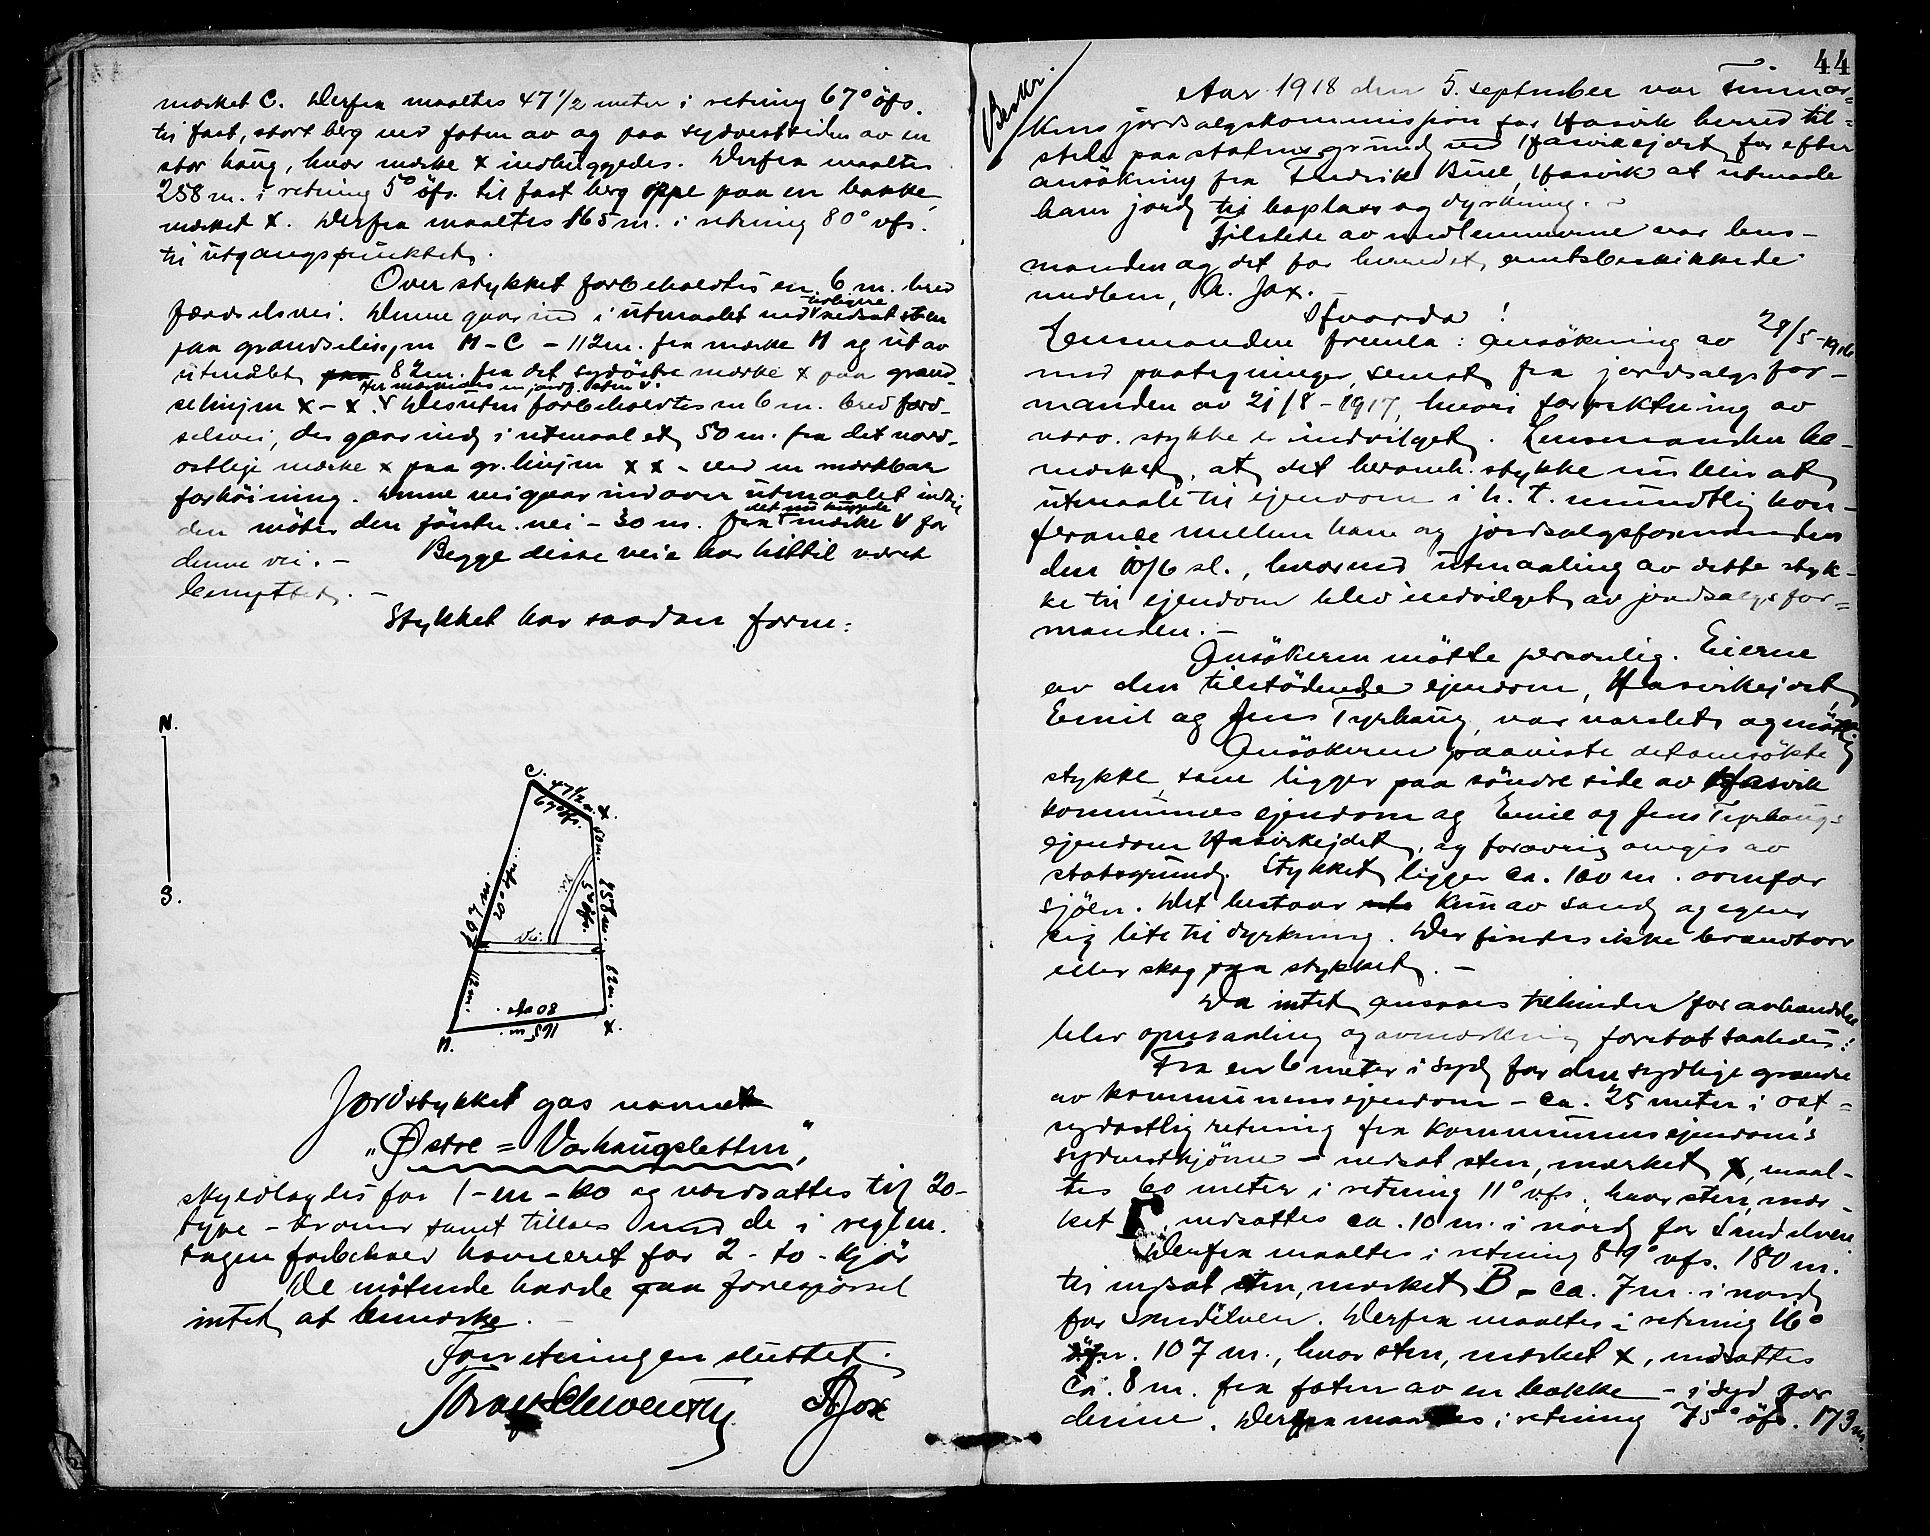 mærket C. Derfra maaltes 47 1/2 meter i retning 67° öfs.
til fast, stort berg ved foten av og paa sydvestsiden av en
stor haug, hvor mærke x indhuggedes. Derfra maaltes
258 m. i retning 5° öfs. til fast berg oppe paa en bakke,
mærket x. Derfra maaltes 165 m. i retning 80° vfs.
til utgangspunktet.
Over stykket forbeholdtes en 6 m. bred
færdselsvei. Denne gaar ind i utmaalet ved nedsat sten
paa grændselinjen H - C - 112 m. fra mærke H og ut av
utmålet 82 m. fra det sydöstre mærke x paa grænd-
selinjen x - x. Desuten forbeholdtes en 6 m. bred færd-
selsvei, der gaar ind i utmaalet 50 m. fra det nord-
ostlige mærke x paa gr. linjen x x - ved en mærkbar
forhöining. Denne vei gaar ind over utmaalet indtil
den möter den förste vei - 30 m. fra det nu huggede mærke V for
denne vei. - Begge disse veie har hittil været
benyttet. -
Stykket har saadan form:
N.
S.
C.
47 1/2 m.
67° öfs.
x.
50 m.
197 m.
20° öfs.
Vei.
258 m.
5° öfs.
Vei.
112 m.
82 m.
80° vfs.
165 m.
H.
x.
Jordstykket gas navnet
"Østre = Varhaugsletten",
skyldlagdes for 1 - en - ko og værdsattes til 20 -
tyve - kroner samt tillaes med de i reglem.
tagen forbehold havneret for 2 - to - kjör
De mötende havde paa forespörsel
intet at bemærke. -
Forretningen sluttet.
A Jox
44
Beskr.
Aar 1918 den 5. september var Finmar-
kens jordsalgskommission for Hasvik herred til-
stede paa statens grund ved Hasvikejdet for efter
ansökning fra Fredrik Buee, Hasvik at utmaale
ham jord til boplass og dyrkning. -
Tilstede av medlemmerne var lens-
manden og det for herredet amtsbeskikkede
medlem, A. Jox. -
Hvorda!
Lensmanden fremla: Ansökning av 28/5 - 1916
med paategninger, senest fra jordsalgsfor-
manden av 21/8 - 1917, hvori forpaktning av
nævn. stykke er indvilget. Lensmanden be-
mærket, at det heromh. stykke nu blir at
utmaale til ejendom i h. t. mundtlig kon-
ferance mellem ham og jordsalgsformanden
den 10/6 sl., hvorved utmaaling av dette styk-
ke til ejendom blev indvilget av jordsalgsfor-
manden. -
Ansökeren mötte personlig. Eierne
av den tilstödende ejendom, Hasvikejdet,
Emil og Jens Tyrhaug, var varslet og mötte
Ansökeren paaviste det ansökte
stykke, som ligger paa söndre side av Hasvik
kommunes ejendom og Emil og Jens Tyrhaugs
ejendom Hasvikejdet, og forövrig omgis av
statsgrund. Stykket ligger ca. 100 m. ovenfor
sjöen. Det bestaar kun av sand og egner
sig lite til dyrkning. Der findes ikke brændtorv
eller skog paa stykket. -
Da intet ansaaes tilhinder for avhændelse
blev opmaaling og avmærkning foretat saaledes:
Fra en 6 meter i syd for den sydlige grændse
av kommunens ejendom - ca. 25 meter i ost-
sydostlig retning fra kommunens ejendoms
sydvesthjörne - nedsat sten, mærket x, maal-
tes 60 meter i retning 11° vfs. hvor sten, mær-
ket Γ nedsattes ca. 10 m. i nord for Sandelven
Derfra maaltes i retning 89° vfs. 180 m.
til nedsat sten, mærket B - ca. 7 m. i nord
for Sandelven. Derfra maaltes i retning 16°
107 m., hvor sten, mærket x, nedsattes
Ca. 8 m. fra foten av en bakke - i syd for
denne. Derfra maaltes i retning 75° öfs. 173 m.